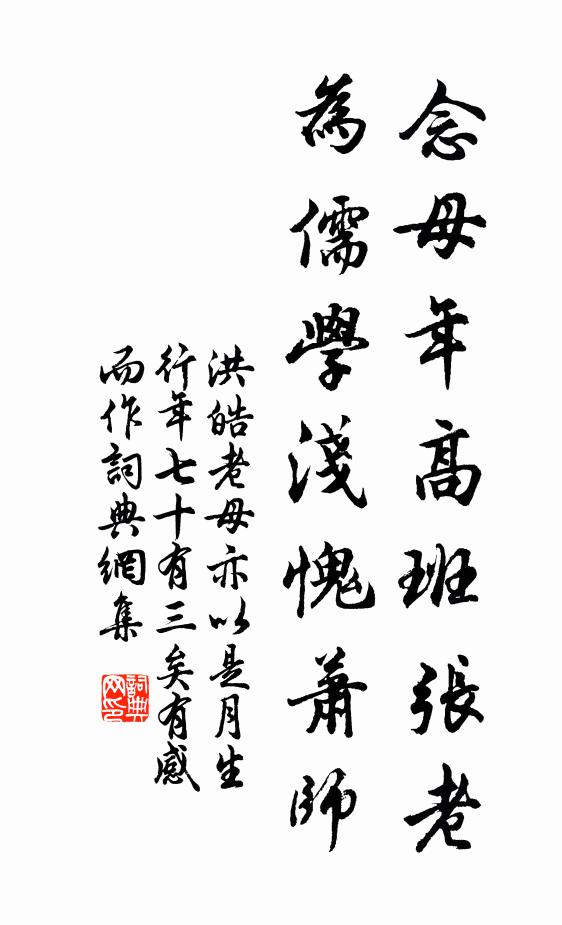 念母年高班張老
為儒學淺愧蕭師
洪皓老母亦以是月生
行年七十有三矣有感
而作詞典網集
詞典
网印